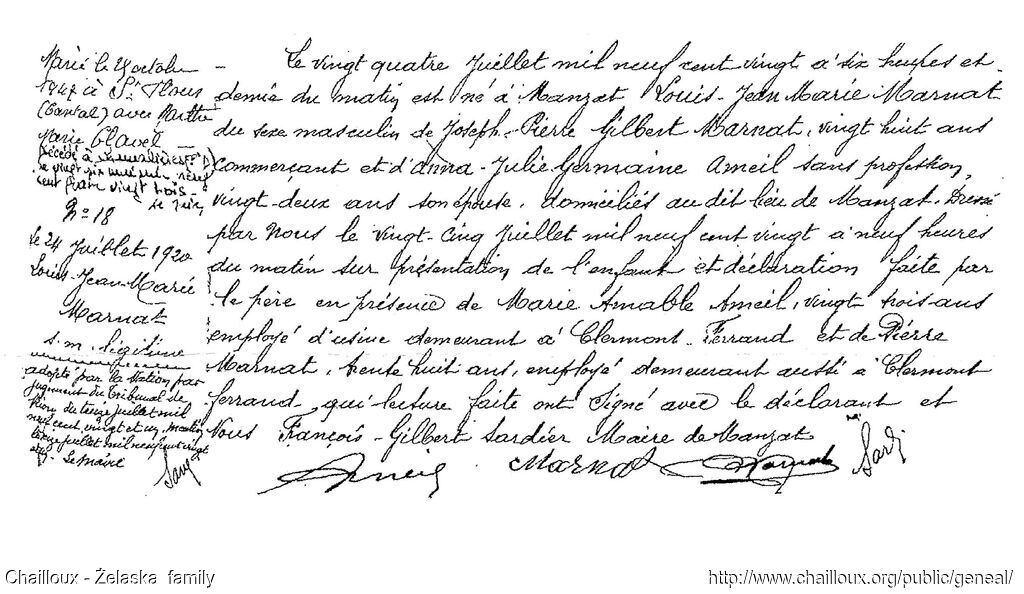 Marié le 29 octobre
1947 à St Flour
(Cantal) avec Marthe
Marie Clavel
Décédé à
le vingt six neuf
cent quatre vingt trois
le
No 18
Le 24 Juillet 1920
Louis-Jean-Marie
Marnat
s. m. légitime
adopté par la Nation par
jugement du tribunal de
Riom du treize juillet mil
neuf cent vingt et un. Manzat
le juillet mil neuf cent vingt
Le Maire
Le vingt quatre Juillet mil neuf cent vingt à six heures et
demie du matin est né à Manzat Louis-Jean Marie Marnat
du sexe masculin de Joseph-Pierre Gilbert Marnat, vingt huit ans
commerçant et d'Anna-Julie Germaine Ameil sans profession,
vingt-deux ans son épouse, domiciliés au dit lieu de Manzat. Dressé
par Nous le vingt-cinq Juillet mil neuf cent vingt à neuf heures
du matin sur présentation de l'enfant et déclaration faite par
le père en présence de Marie Amable Ameil, vingt trois ans
employé d'usine demeurant à Clermont-Ferrand et de Pierre
Marnat, trente huit ans, employé demeurant aussi à Clermont
Ferrand, qui lecture faite ont signé avec le déclarant et
Nous François-Gilbert Sardier Maire de Manzat
Ameil Marnat Marnat Sardi
Chailloux - Želaska family
http://www.chailloux.org/public/geneal/